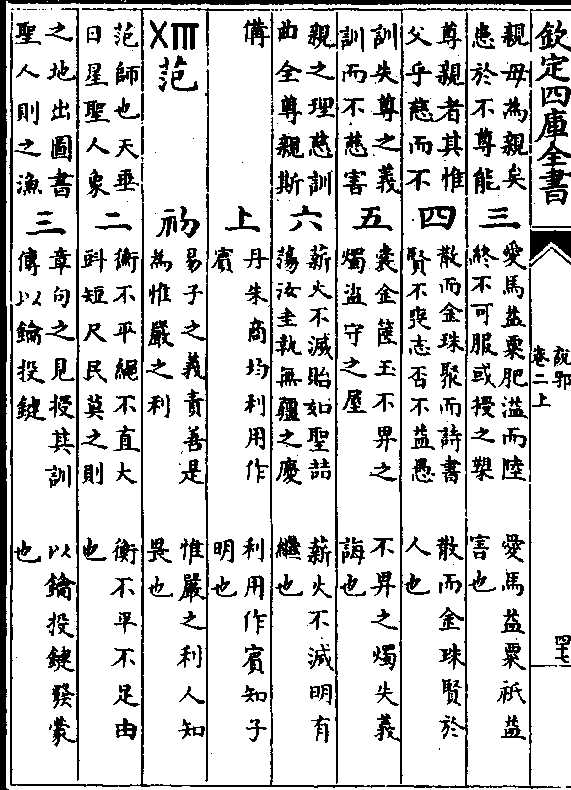 欽定四庫全書
説郛
卷二上
四七
親毋為親矣
患於不尊能
三
愛馬益粟肥溢而陸
終不可服或授之
愛馬益粟祇益
害也
尊親者其惟
父乎慈而不
四
散而金珠聚而詩書
賢不喪志否不益愚
散而金珠賢於
人也
訓失尊之義
訓而不慈害
五
囊金篋玉不畀之
燭盜守之屋
不畀之燭失義
誨也
親之理慈訓
曲全尊親斯
六
薪火不減貽如聖喆
蕩汝圭執無疆之慶
薪火不減明有
繼也
備
上
丹朱商均利用作
賓
利用作賓知子
明也
范
初
易子之義責善是
為惟嚴之利
惟嚴之利人知
畏也
范師也天垂
日星聖人象
二
衡不平繩不直大
㪷短尺民莫之則
衡不平不足由
也
之地出圖書
聖人則之漁
三
章句之見授其訓
傳以鑰投鍵
以鑰投鍵發蒙
也